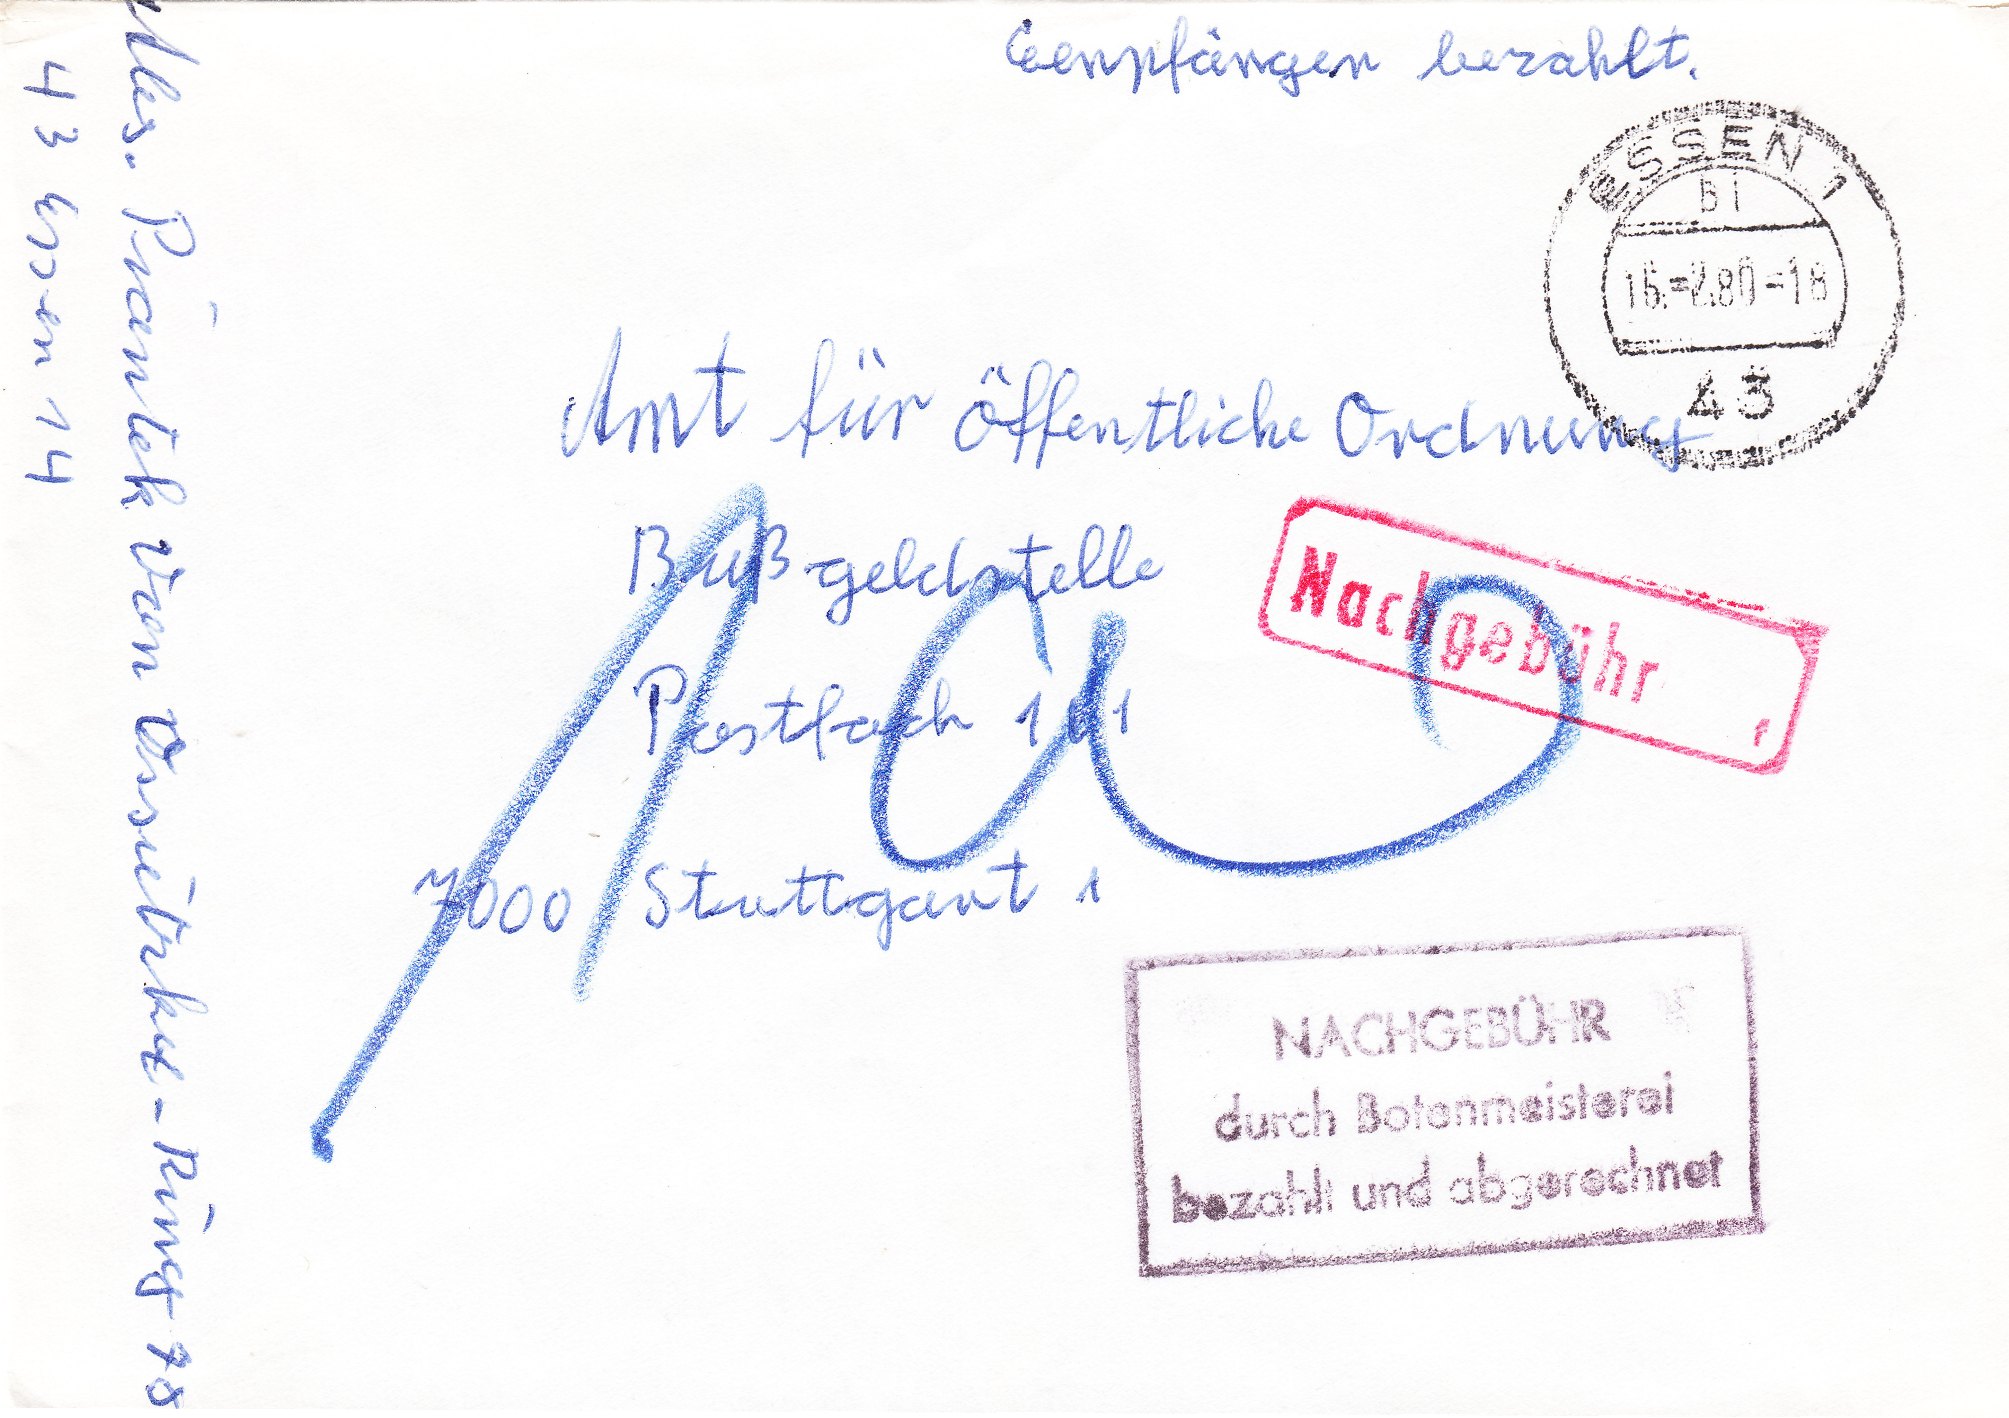 Empfänger bezahlt.
ESSEN 1
bi
16.-2.80-18
43
Amt für öffentliche Ordnung
Bußgeldstelle
Postfach 161
7000 Stuttgart 1
Nachgebühr
NACHGEBÜHR
durch Botenmeisterei
bezahlt und abgerechnet
Abs. Piontek Von Ossietzky-Ring 78
43 Essen 14